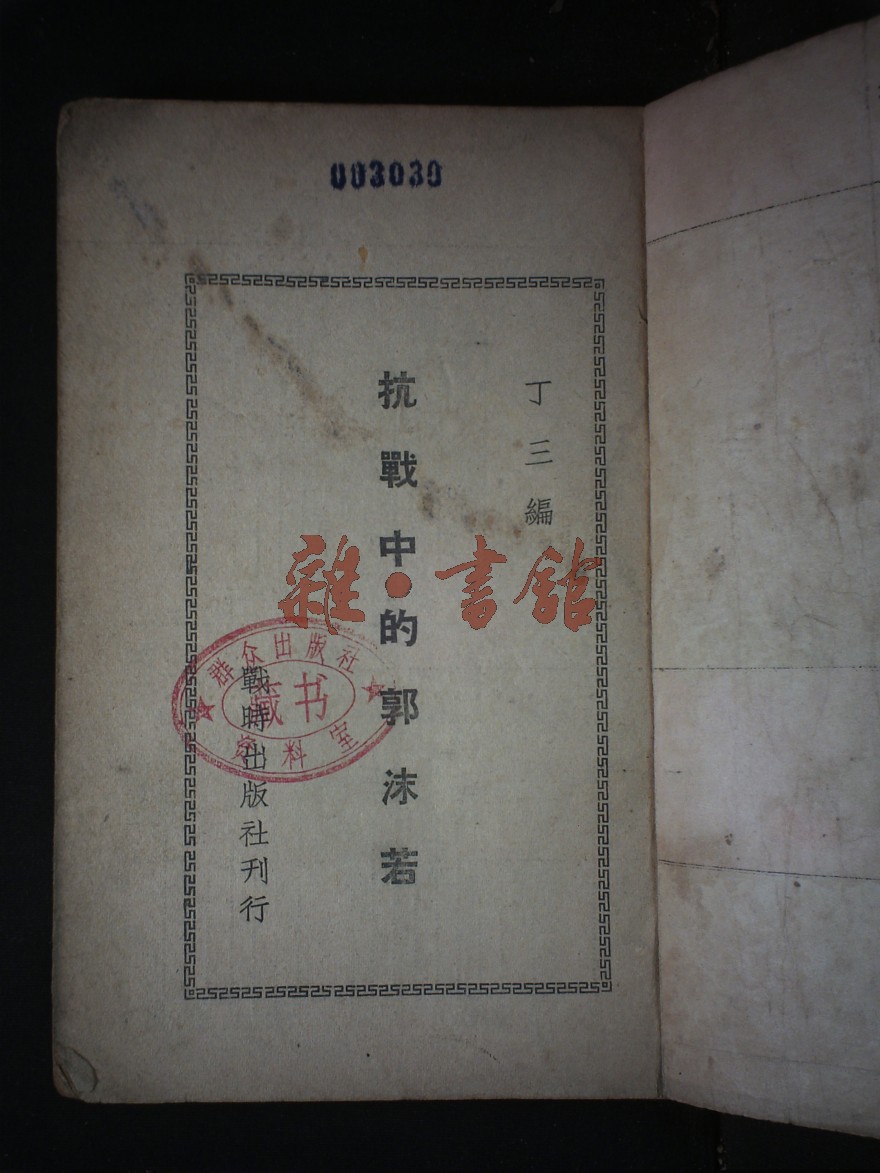 003030
丁三編
抗戰中的郭沫若
戰時出版社刊行
群众出版社
藏书
资料室
雜·書館